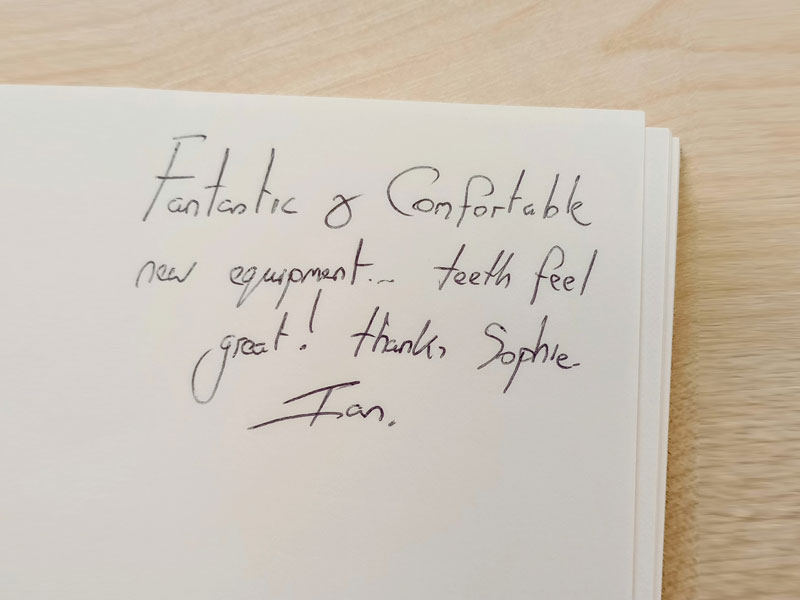 Fantastic & Comfortable
new equipment... teeth feel
great! thanks Sophie
Ian.